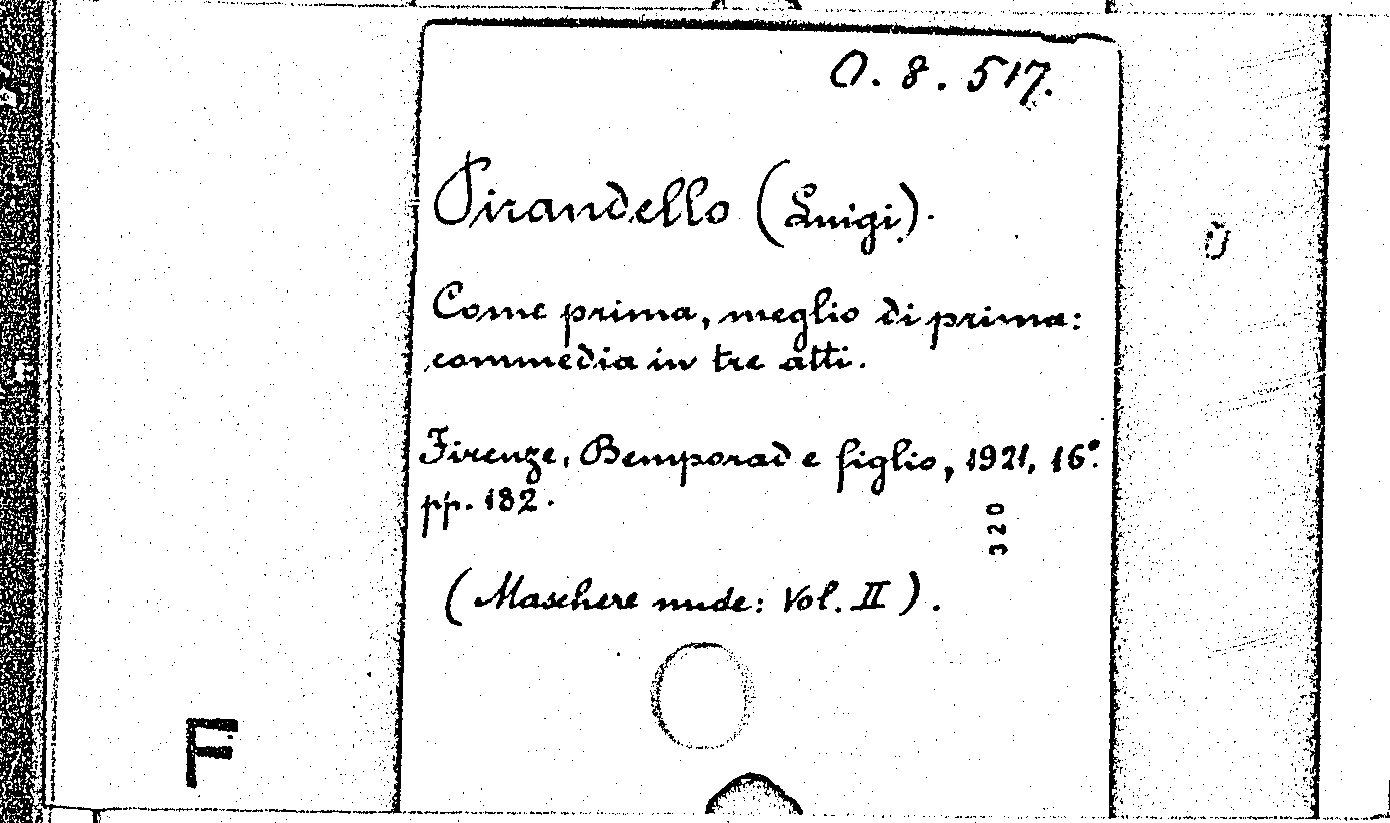 O. 8. 517.
Pirandello (Luigi).
Come prima, meglio di prima:
commedia in tre atti.
Firenze, Bemporad e figlio, 1921, 16°.
pp. 182.
320
(Maschere nude: Vol. II).
F